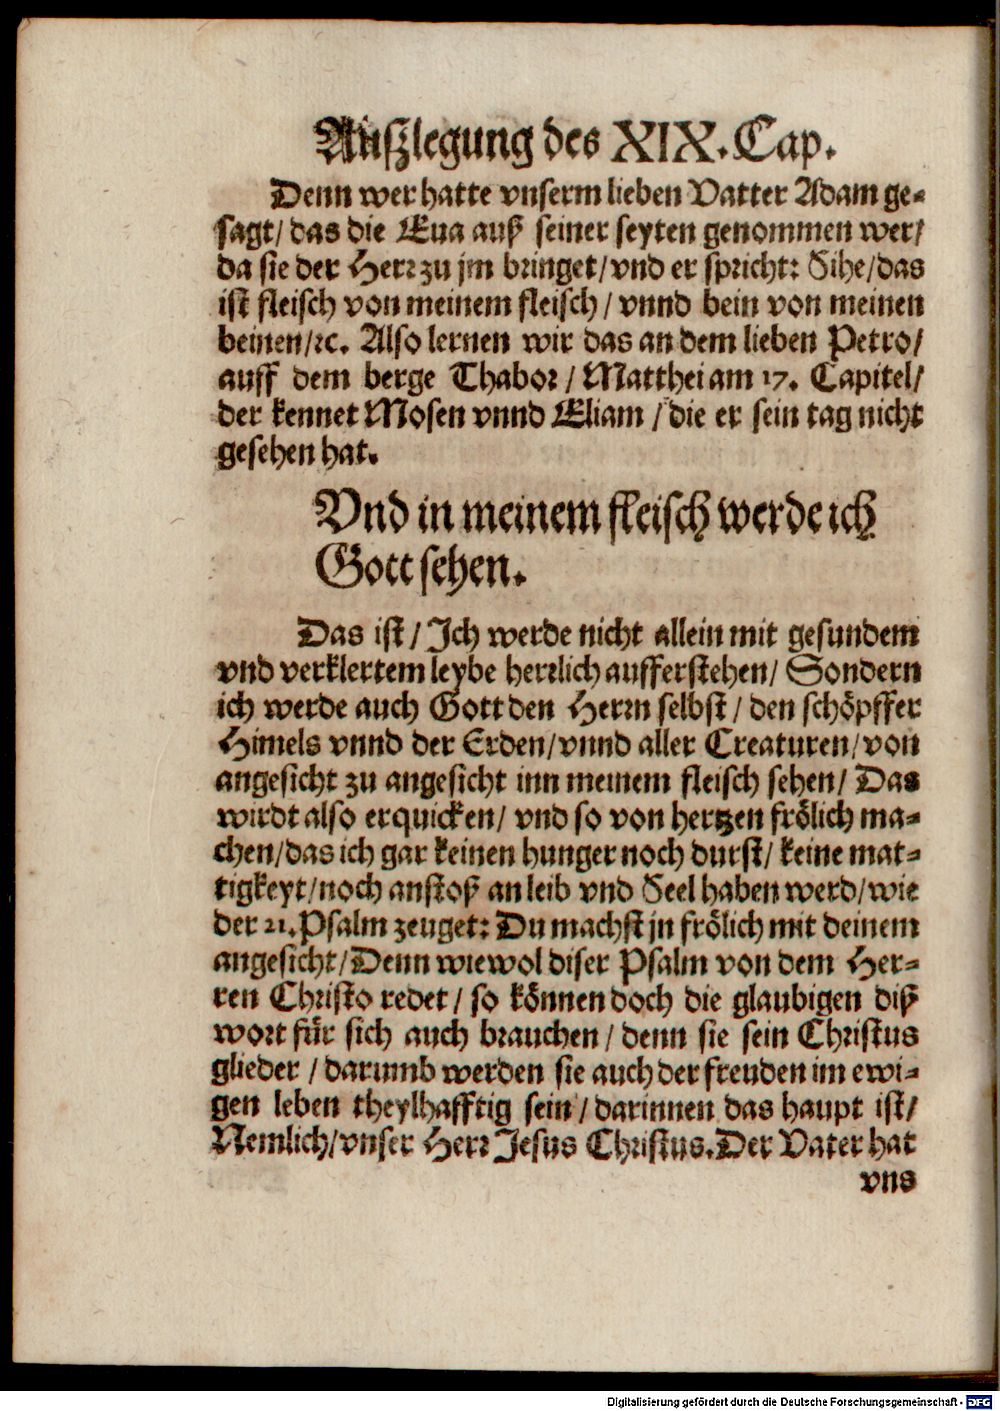 Außlegung des XIX. Cap.
Denn wer hatte vnserm lieben Vatter Adam ge-
sagt/ das die Eua auß seiner seyten genommen wer/
da sie der Herr zu jm bringet/ vnd er spricht: Sihe/ das
ist fleisch von meinem fleisch/ vnnd bein von meinen
beinen/ ꝛc. Also lernen wir das an dem lieben Petro/
auff dem berge Thabor/ Matthei am 17. Capitel/
der kennet Mosen vnnd Eliam/ die er sein tag nicht
gesehen hat.
Vnd in meinem fleisch werde ich
Gott sehen.
Das ist/ Ich werde nicht allein mit gesundem
vnd verklertem leybe herrlich aufferstehen/ Sondern
ich werde auch Gott den Herrn selbst/ den schöpffer
Himels vnnd der Erden/ vnnd aller Creaturen/ von
angesicht zu angesicht inn meinem fleisch sehen/ Das
wirdt also erquicken/ vnd so von hertzen frölich ma-
chen/ das ich gar keinen hunger noch durst/ keine mat-
tigkeyt/ noch anstoß an leib vnd Seel haben werd/ wie
der 21. Psalm zeuget: Du machst jn frölich mit deinem
angesicht/ Denn wiewol diser Psalm von dem Her-
ren Christo redet/ so können doch die glaubigen diß
wort für sich auch brauchen/ denn sie sein Christus
glieder/ darumb werden sie auch der freuden im ewi-
gen leben theylhafftig sein/ darinnen das haupt ist/
Nemlich/ vnser Herr Jesus Christus. Der Vater hat
vns
Digitalisierung gefördert durch die Deutsche Forschungsgemeinschaft - DFG